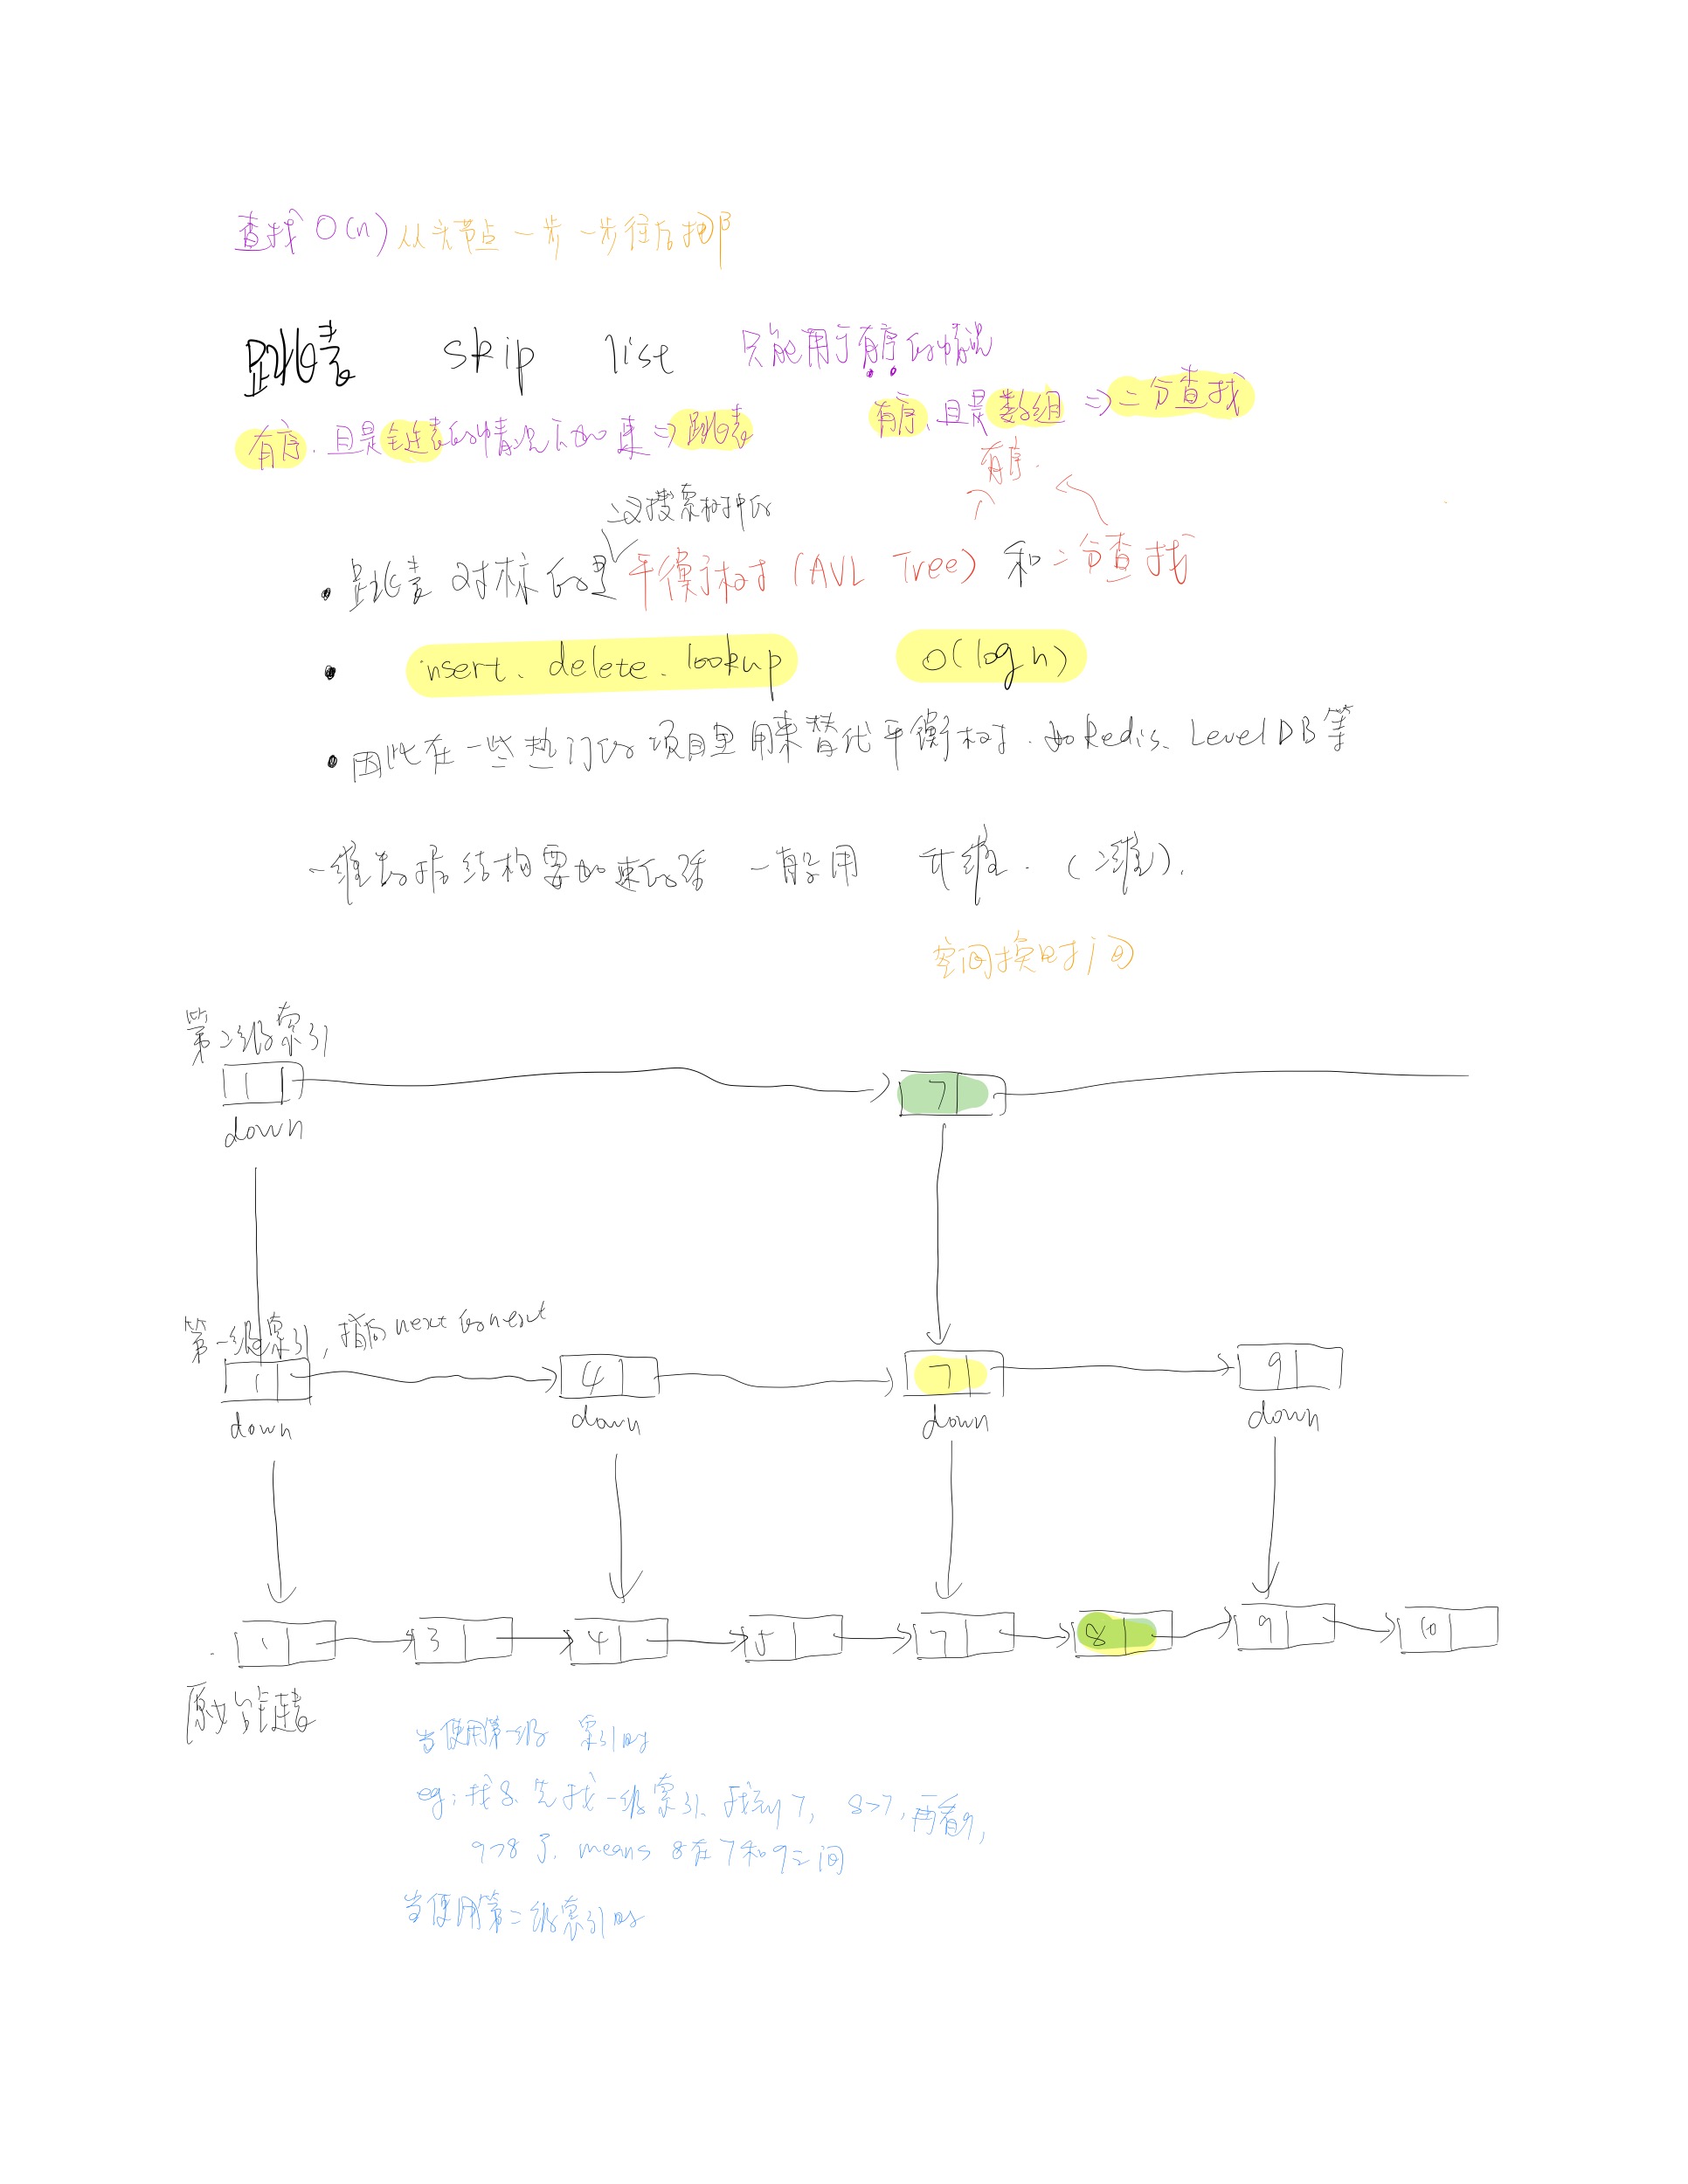 查找 O(n) 从头节点一步一步往后挪
跳表 skip list 只能用于有序的情况
有序、且是链表的情况下加速 ⇒ 跳表
有序、且是数组 ⇒ 二分查找
有序.
二叉搜索树中的
• 跳表对标的是平衡树 (AVL Tree) 和二分查找
• insert、delete、lookup O(log n)
• 因此在一些热门的项目里用来替代平衡树. 如 Redis、LevelDB 等
一维数据结构要加速的话 一般用 升维. (2维).
空间换时间
第二级索引
1 7
down
第一级索引, 指向 next 的 next
1 4 7 9
down down down down
1 3 4 5 7 8 9 10
原始链表
当使用第一级 索引时
eg: 找8、先找一级索引、找到7, 8>7, 再看9,
9>8 了、means 8在7和9之间
当使用第二级索引时